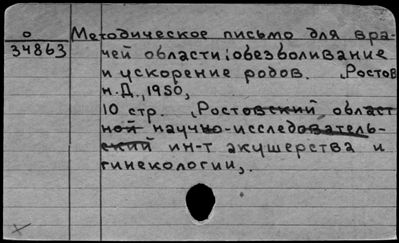 о
34863
Методическое письмо для вра-
чей области: обезболивание
и ускорение родов. Ростов
н.Д., 1950,
10 стр. Ростовский област
ной научно-исследователь-
ский ин-т акушерства и
гинекологии,.